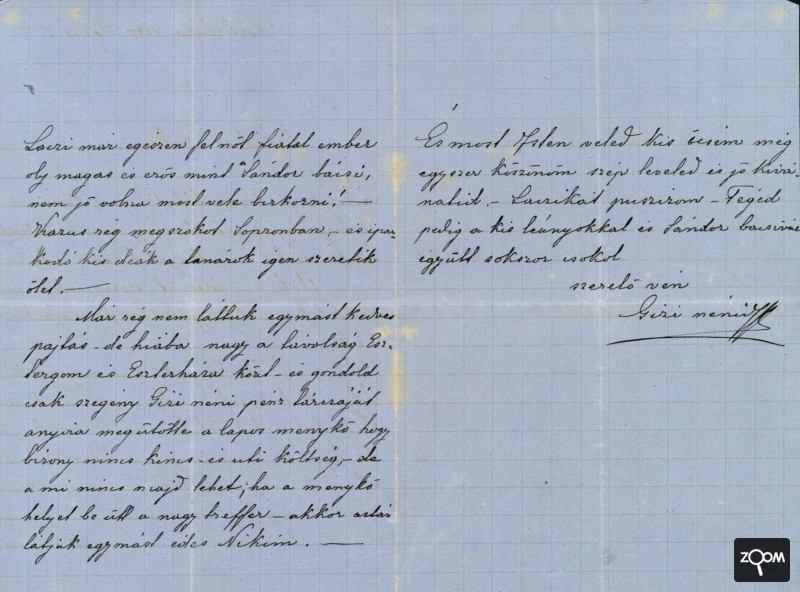 Laczi már egészen felnőt fiatal ember
oly magas és erős mint Sándor bácsi,
nem jó volna most vele birkozni! —
Viszus rég megszokot Sopronban, – és ipar-
kodó kis deák a tanárok igen szeretik
őtet. —
Már rég nem láttuk egymást kedves
pajtás – de hiába nagy a távolság Esz-
tergom és Eszterháza közt – és gondold
csak szegény Gizi néni pénz tárczáját
anyira megütötte a lapos menykő hogy
bizony nincs kincs – és uti költség, – de
a mi nincs majd lehet; ha a menykő
helyet be üt a nagy treffer – akkor aztán
látjuk egymást édes Nikim. —
És most Isten veled kis öcsém még
egyszer köszönöm szép leveled és jó kivá-
natid. – Laczikát puszizom – Téged
pedig a kis leányokkal és Sándor bácsival
együtt sokszor csokol
szerető vén
Gizi nénid
ZOOM